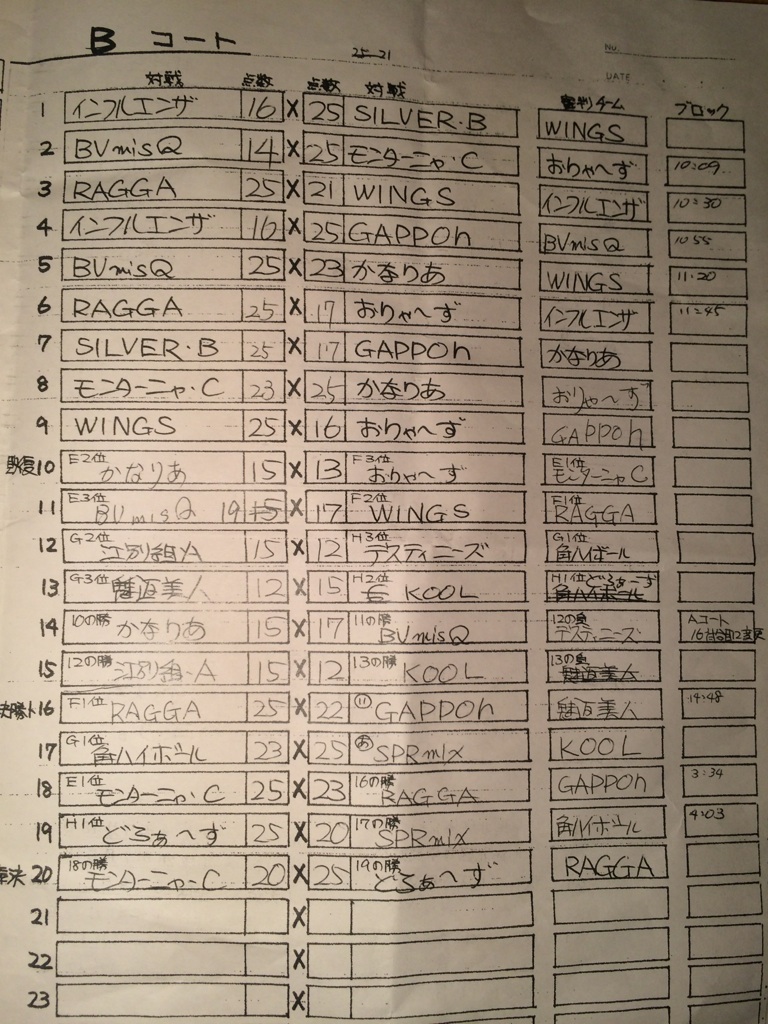 B コート
25-21
No.
DATE
対戦 点数 点数 対戦 審判チーム ブロック
1 インフルエンザ 16 X 25 SILVER・B WINGS
2 BVmisQ 14 X 25 モンターニャ・C おりゃ〜ず 10:09
3 RAGGA 25 X 21 WINGS インフルエンザ 10:30
4 インフルエンザ 16 X 25 GAPPOn BVmisQ 10:55
5 BVmisQ 25 X 23 かなりあ WINGS 11:20
6 RAGGA 25 X 17 おりゃ〜ず インフルエンザ 11:45
7 SILVER・B 25 X 17 GAPPOn かなりあ
8 モンターニャ・C 23 X 25 かなりあ おりゃ〜ず
9 WINGS 25 X 16 おりゃ〜ず GAPPOn
10 E2位 かなりあ 15 X 13 F3位 おりゃ〜ず E1位 モンターニャC
11 E3位 BVmisQ 19 15 X 17 F2位 WINGS F1位 RAGGA
12 G2位 江別組A 15 X 12 H3位 デスティニーズ G1位 角ハイボール
13 G3位 美人 12 X 15 H2位 KOOL H1位 どろぁ〜ず 角ハイボール
14 10の勝 かなりあ 15 X 17 11の勝 BVmisQ 12の負 デスティニーズ Aコート 16試合目に変更
15 12の勝 江別組・A 15 X 12 13の勝 KOOL 13の負 美人
16 F1位 RAGGA 25 X 22 GAPPOn 美人 14:48
17 G1位 角ハイボール 23 X 25 あ SPRmix KOOL
18 E1位 モンターニャ・C 25 X 23 16の勝 RAGGA GAPPOn 3:34
19 H1位 どろぁ〜ず 25 X 20 17の勝 SPRmix 角ハイボール 4:03
20 18の勝 モンターニャ・C 20 X 25 19の勝 どろぁ〜ず RAGGA
21 X
22 X
23 X